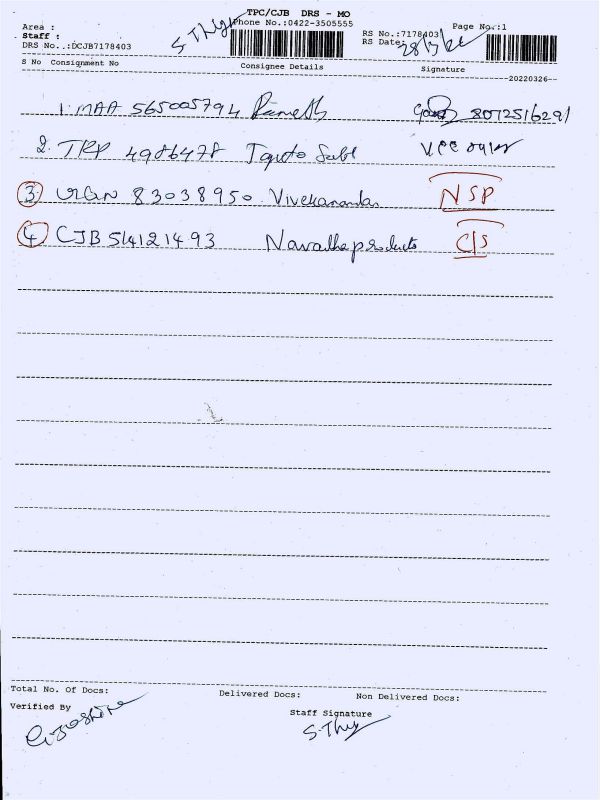 TPC/CJB DRS - MO
Area :
Phone No.:0422-3505555
Page No.:1
Staff : S. Thy
RS No.:7178403
DRS No..:DCJB7178403
RS Date: 28/3/22
S No Consignment No Consignee Details Signature
20220326
1. MAA 565005794 8072516291
2. TRP 4986478
3 83038950 Vivekanandan NSP
4 CJB 514121493 products C/S
Total No. Of Docs: Delivered Docs: Non Delivered Docs:
Verified By
Staff Signature
S. Thy